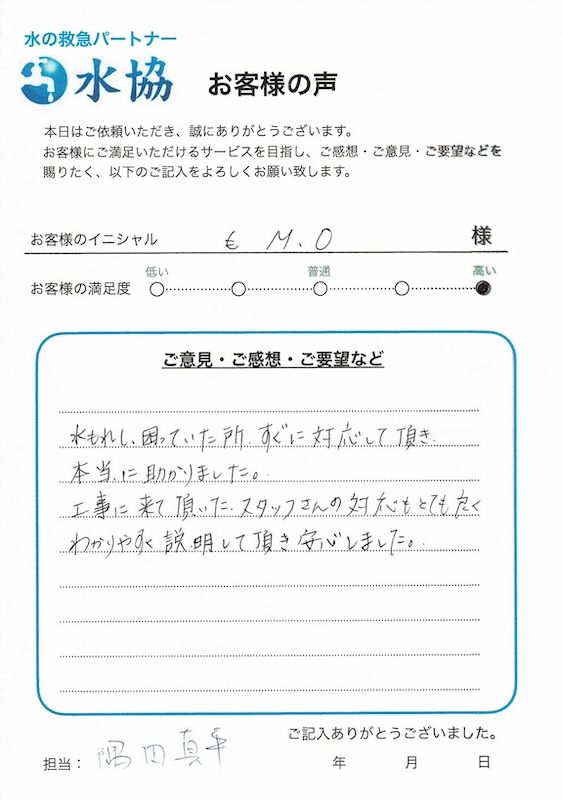 水の救急パートナー
水協 お客様の声
本日はご依頼いただき、誠にありがとうございます。
お客様にご満足いただけるサービスを目指し、ご感想・ご意見・ご要望などを
賜りたく、以下のご記入をよろしくお願い致します。
お客様のイニシャル M.O 様
低い 普通 高い
お客様の満足度
ご意見・ご感想・ご要望など
水もれし、困っていた所、すぐに対応して頂き
本当に助かりました。
工事に来て頂いた、スタッフさんの対応もとても良く
わかりやすく説明して頂き安心しました。
ご記入ありがとうございました。
担当： 隅田真平 年 月 日